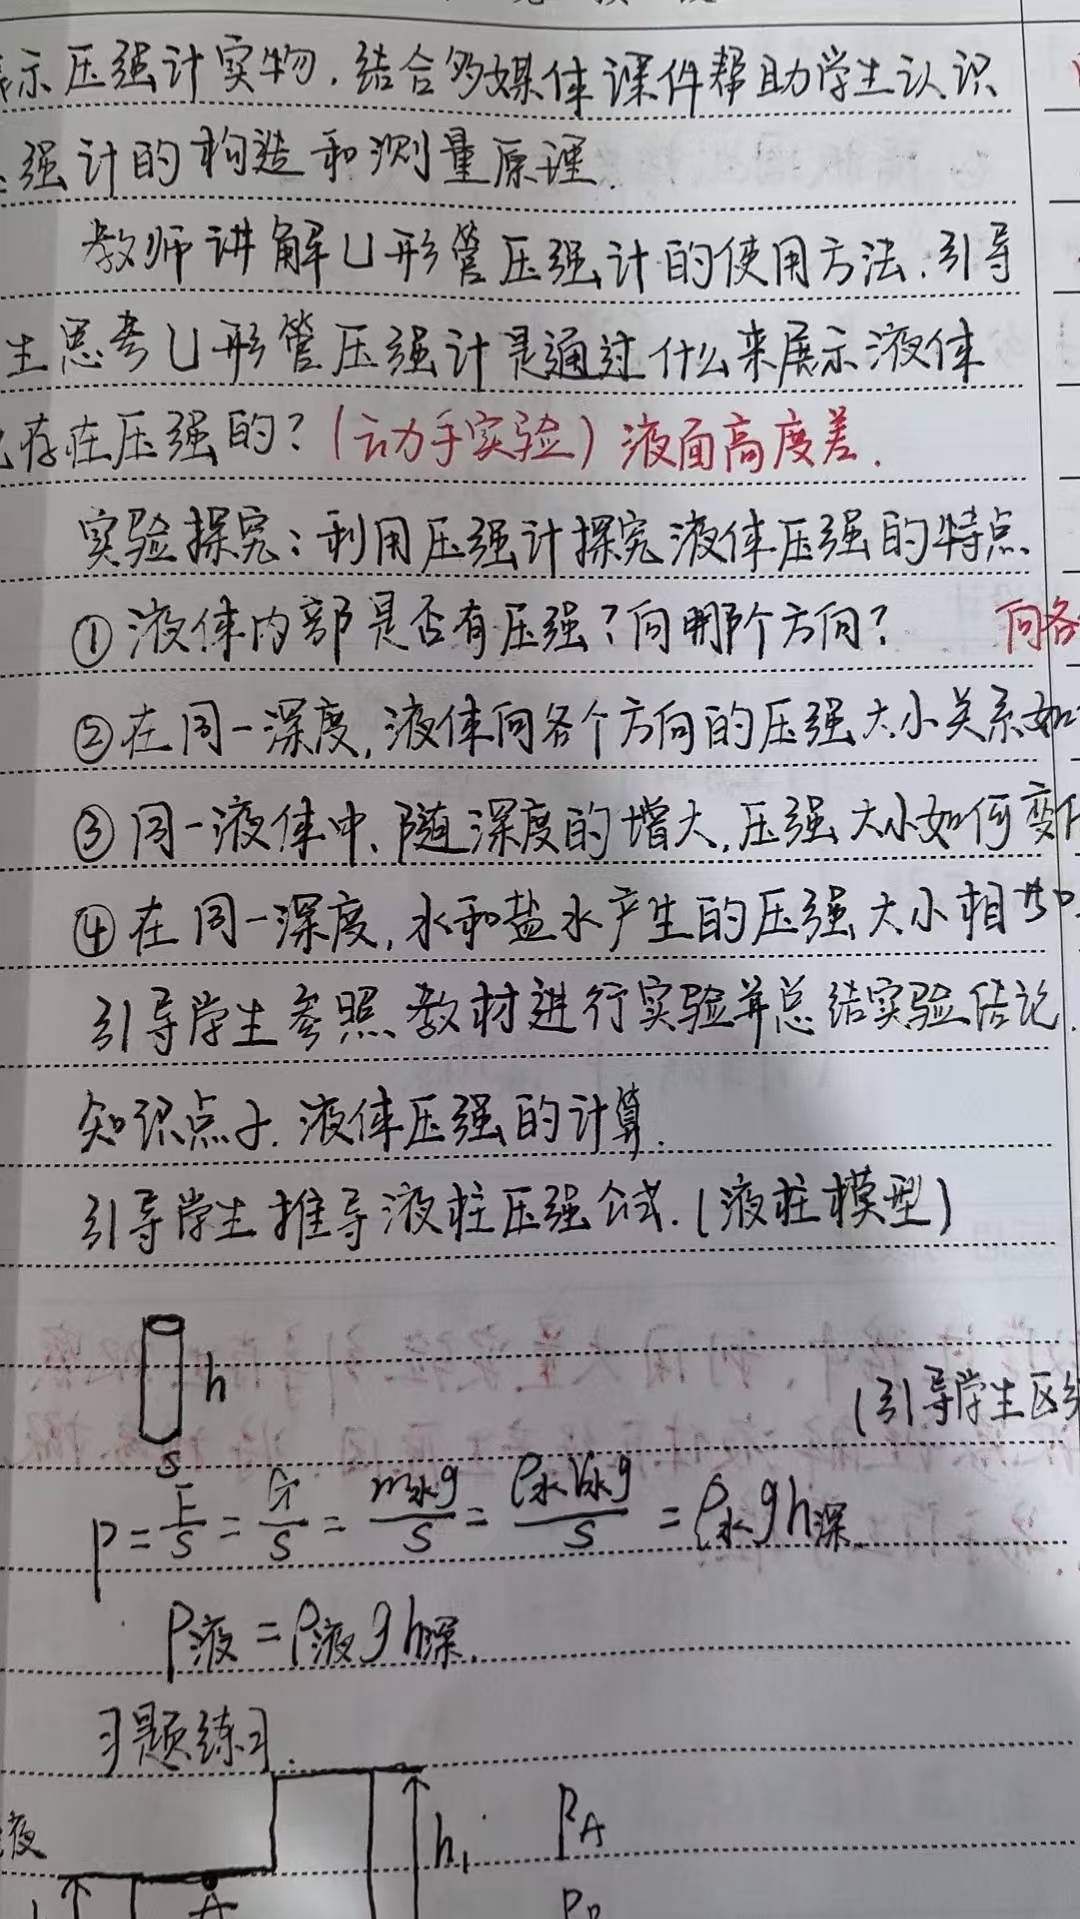 示压强计实物.结合多媒体课件帮助学生认识
强计的构造和测量原理.
教师讲解U形管压强计的使用方法.引导
生思考U形管压强计是通过什么来展示液体
存在压强的?(动手实验)液面高度差.
实验探究:利用压强计探究液体压强的特点
①液体内部是否有压强?向哪个方向? 向各
②在同一深度,液体向各个方向的压强大小关系如
③同一液体中、随深度的增大,压强大小如何变
④在同一深度,水和盐水产生的压强大小相
引导学生参照教材进行实验并总结实验结论.
知识点2.液体压强的计算.
引导学生推导液柱压强公式.(液柱模型)
h
(引导学生区
S
P=F/S=G/S=m水g/S=ρ水V水g/S=ρ水gh深.
P液=ρ液gh深.
习题练习.
液
h₁ PA
A